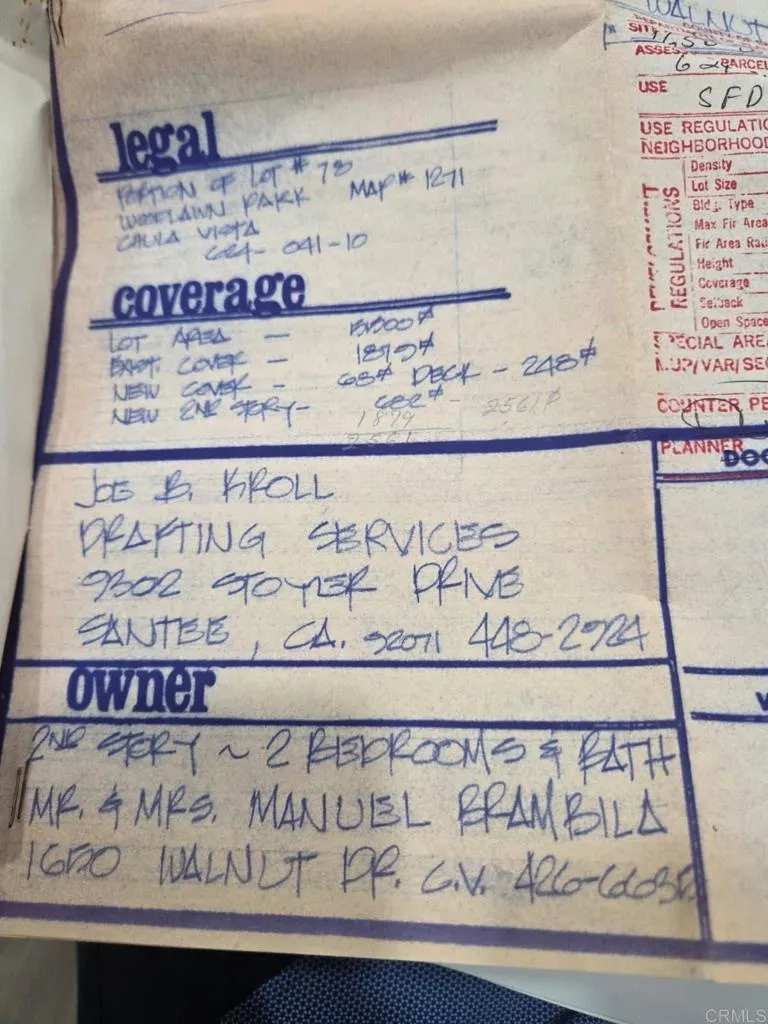 legal
PORTION OF LOT # 78
WOODLAWN PARK MAP # 1271
CHULA VISTA
624-041-10
coverage
LOT AREA —
EXIST. COVER — 1879#
NEW COVER - 68# DECK - 248#
NEW 2ND STORY- 682# - 2561#
1879
2561
JOE B. KROLL
DRAFTING SERVICES
9302 STOYER DRIVE
SANTEE, CA. 92071 448-2924
owner
2ND STORY ~ 2 BEDROOMS & BATH
MR. & MRS. MANUEL BRAMBILA
1650 WALNUT DR. C.V.
WALNUT
SIT
ASSES
PARCEL
USE SFD
USE REGULATIO
NEIGHBORHOOD
DEVELOPMENT
REGULATIONS
Density
Lot Size
Bldg. Type
Max Flr Area
Flr Area Rati
Height
Coverage
Setback
Open Space
SPECIAL AREA
M.UP/VAR/SEC
COUNTER PE
PLANNER
DOC
CRMLS